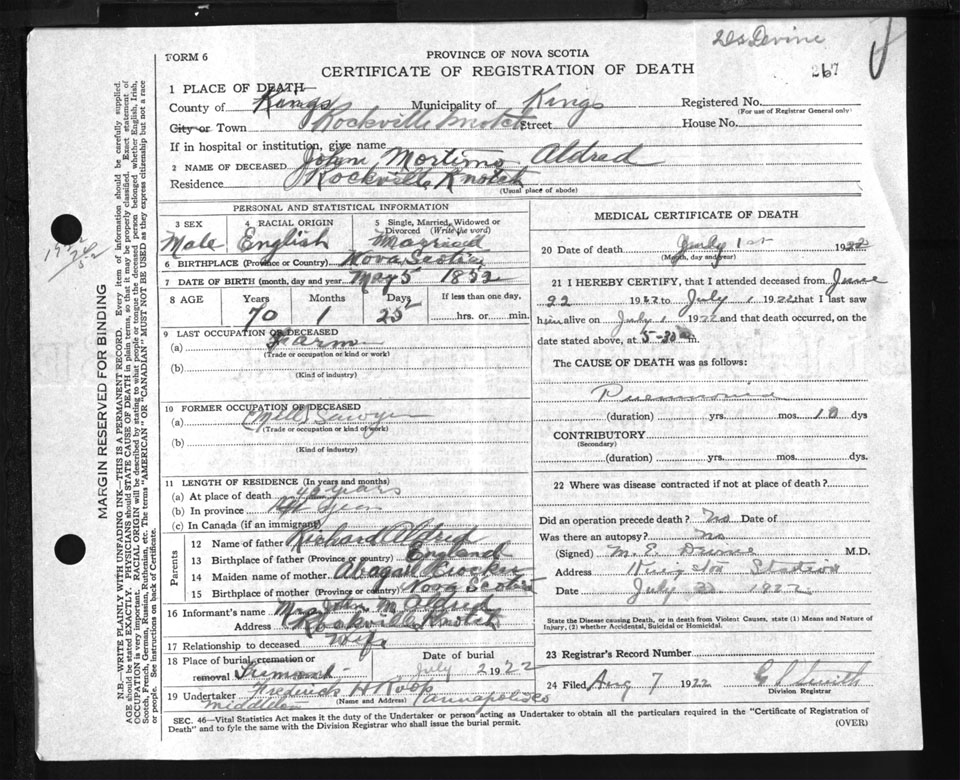 267
FORM 6
PROVINCE OF NOVA SCOTIA
CERTIFICATE OF REGISTRATION OF DEATH
1 PLACE OF DEATH
County of Kings Municipality of Kings Registered No.
(For use of Registrar General only)
City or Town Rockville Street House No.
If in hospital or institution, give name
2 NAME OF DECEASED John Mortimo Aldred
Residence Rockville Knotch
(Usual place of abode)
PERSONAL AND STATISTICAL INFORMATION
3 SEX 4 RACIAL ORIGIN 5 Single, Married, Widowed or
Divorced (Write the word)
Male English Married
6 BIRTHPLACE (Province or Country) Nova Scotia
7 DATE OF BIRTH (month, day and year) May 5 1852
8 AGE Years Months Days If less than one day,
70 1 25 hrs. or min.
9 LAST OCCUPATION OF DECEASED
(a)
(Trade or occupation or kind or work)
(b)
(Kind of industry)
10 FORMER OCCUPATION OF DECEASED
(a) (Mill) Sawyer
(Trade or occupation or kind of work)
(b)
(Kind of industry)
11 LENGTH OF RESIDENCE (In years and months)
(a) At place of death years
(b) In province
(c) In Canada (if an immigrant)
Parents
12 Name of father Richard Aldred
13 Birthplace of father (Province or country) England
14 Maiden name of mother Abagail Crocker
15 Birthplace of mother (Province or country) Nova Scotia
16 Informant's name Mrs John M Aldred
Address Rockville Knotch
17 Relationship to deceased Wife
18 Place of burial, cremation or removal Tremont Date of burial July 2 1922
19 Undertaker Frederick H Roop
(Name and Address)
Middleton Annapolis Co
MEDICAL CERTIFICATE OF DEATH
20 Date of death July 1st 1922
(Month, day and year)
21 I HEREBY CERTIFY, that I attended deceased from June
22 1922 to July 1 1922 that I last saw
him alive on July 1 1922 and that death occurred, on the
date stated above, at 5-30 m.
The CAUSE OF DEATH was as follows:
Pneumonia
(duration) yrs. mos. 10 dys
CONTRIBUTORY
(Secondary)
(duration) yrs. mos. dys.
22 Where was disease contracted if not at place of death?
Did an operation precede death? No Date of
Was there an autopsy? No
(Signed) M. E. M.D.
Address Kingston Station
Date July 1922
State the Disease causing Death, or in death from Violent Causes, state (1) Means and Nature of
Injury, (2) whether Accidental, Suicidal or Homicidal.
23 Registrar's Record Number
24 Filed Aug 7 1922
Division Registrar
SEC. 46—Vital Statistics Act makes it the duty of the Undertaker or person acting as Undertaker to obtain all the particulars required in the "Certificate of Registration of
Death" and to fyle the same with the Division Registrar who shall issue the burial permit.
(OVER)
MARGIN RESERVED FOR BINDING
N.B.—WRITE PLAINLY WITH UNFADING INK—THIS IS A PERMANENT RECORD. Every item of information should be carefully supplied
AGE should be stated EXACTLY. PHYSICIANS should STATE CAUSE OF DEATH in plain terms, so that it may be properly classified. Exact statement of
OCCUPATION is very important. RACIAL ORIGIN will be described by stating to what people or tongue the deceased person belonged whether English, Irish,
Scotch, French, German, Russian, Ruthenian, etc. The terms "AMERICAN" or "CANADIAN" MUST NOT BE USED as they express citizenship but not a race
or people. See instructions on back of Certificate.